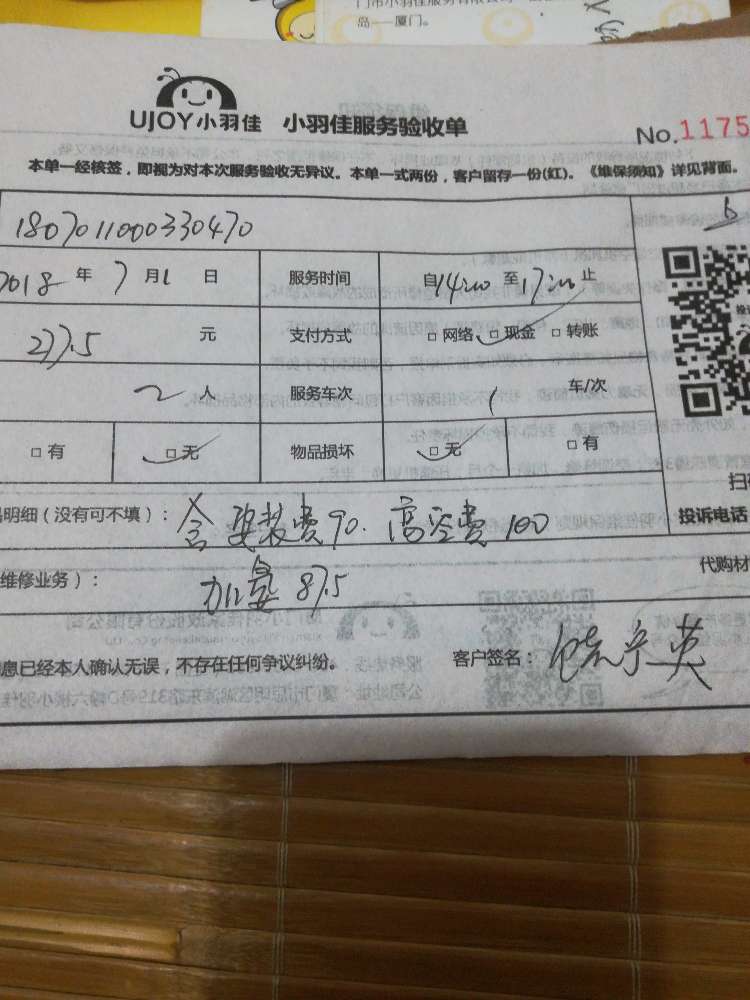 门市小羽佳服务有限公司
岛——厦门。
UJOY小羽佳 小羽佳服务验收单
No.1175
本单一经核签，即视为对本次服务验收无异议。本单一式两份，客户留存一份(红)。《维保须知》详见背面。
1807011000330470
2018年7月1日 服务时间 自14:00至17:00止
277.5元 支付方式 □网络 □现金 □转账
2人 服务车次 1车/次
□有 □无 物品损坏 □无 □有
明细（没有可不填）： 含 安装费90. 高空费100 投诉电话
维修业务）： 加氟 87.5 代购材
息已经本人确认无误，不存在任何争议纠纷。 客户签名：